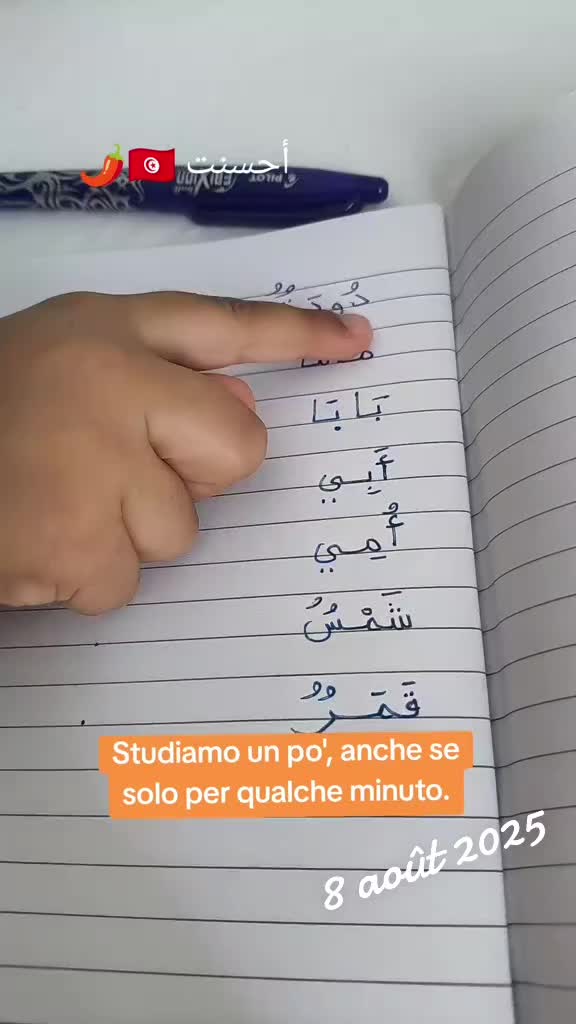 أحسنت 🇹🇳🌶️
PILOT FRIXION
بَابَا
أَبِي
أُمِي
شَمْسٌ
قَمَرٌ
Studiamo un po', anche se
solo per qualche minuto.
8 août 2025